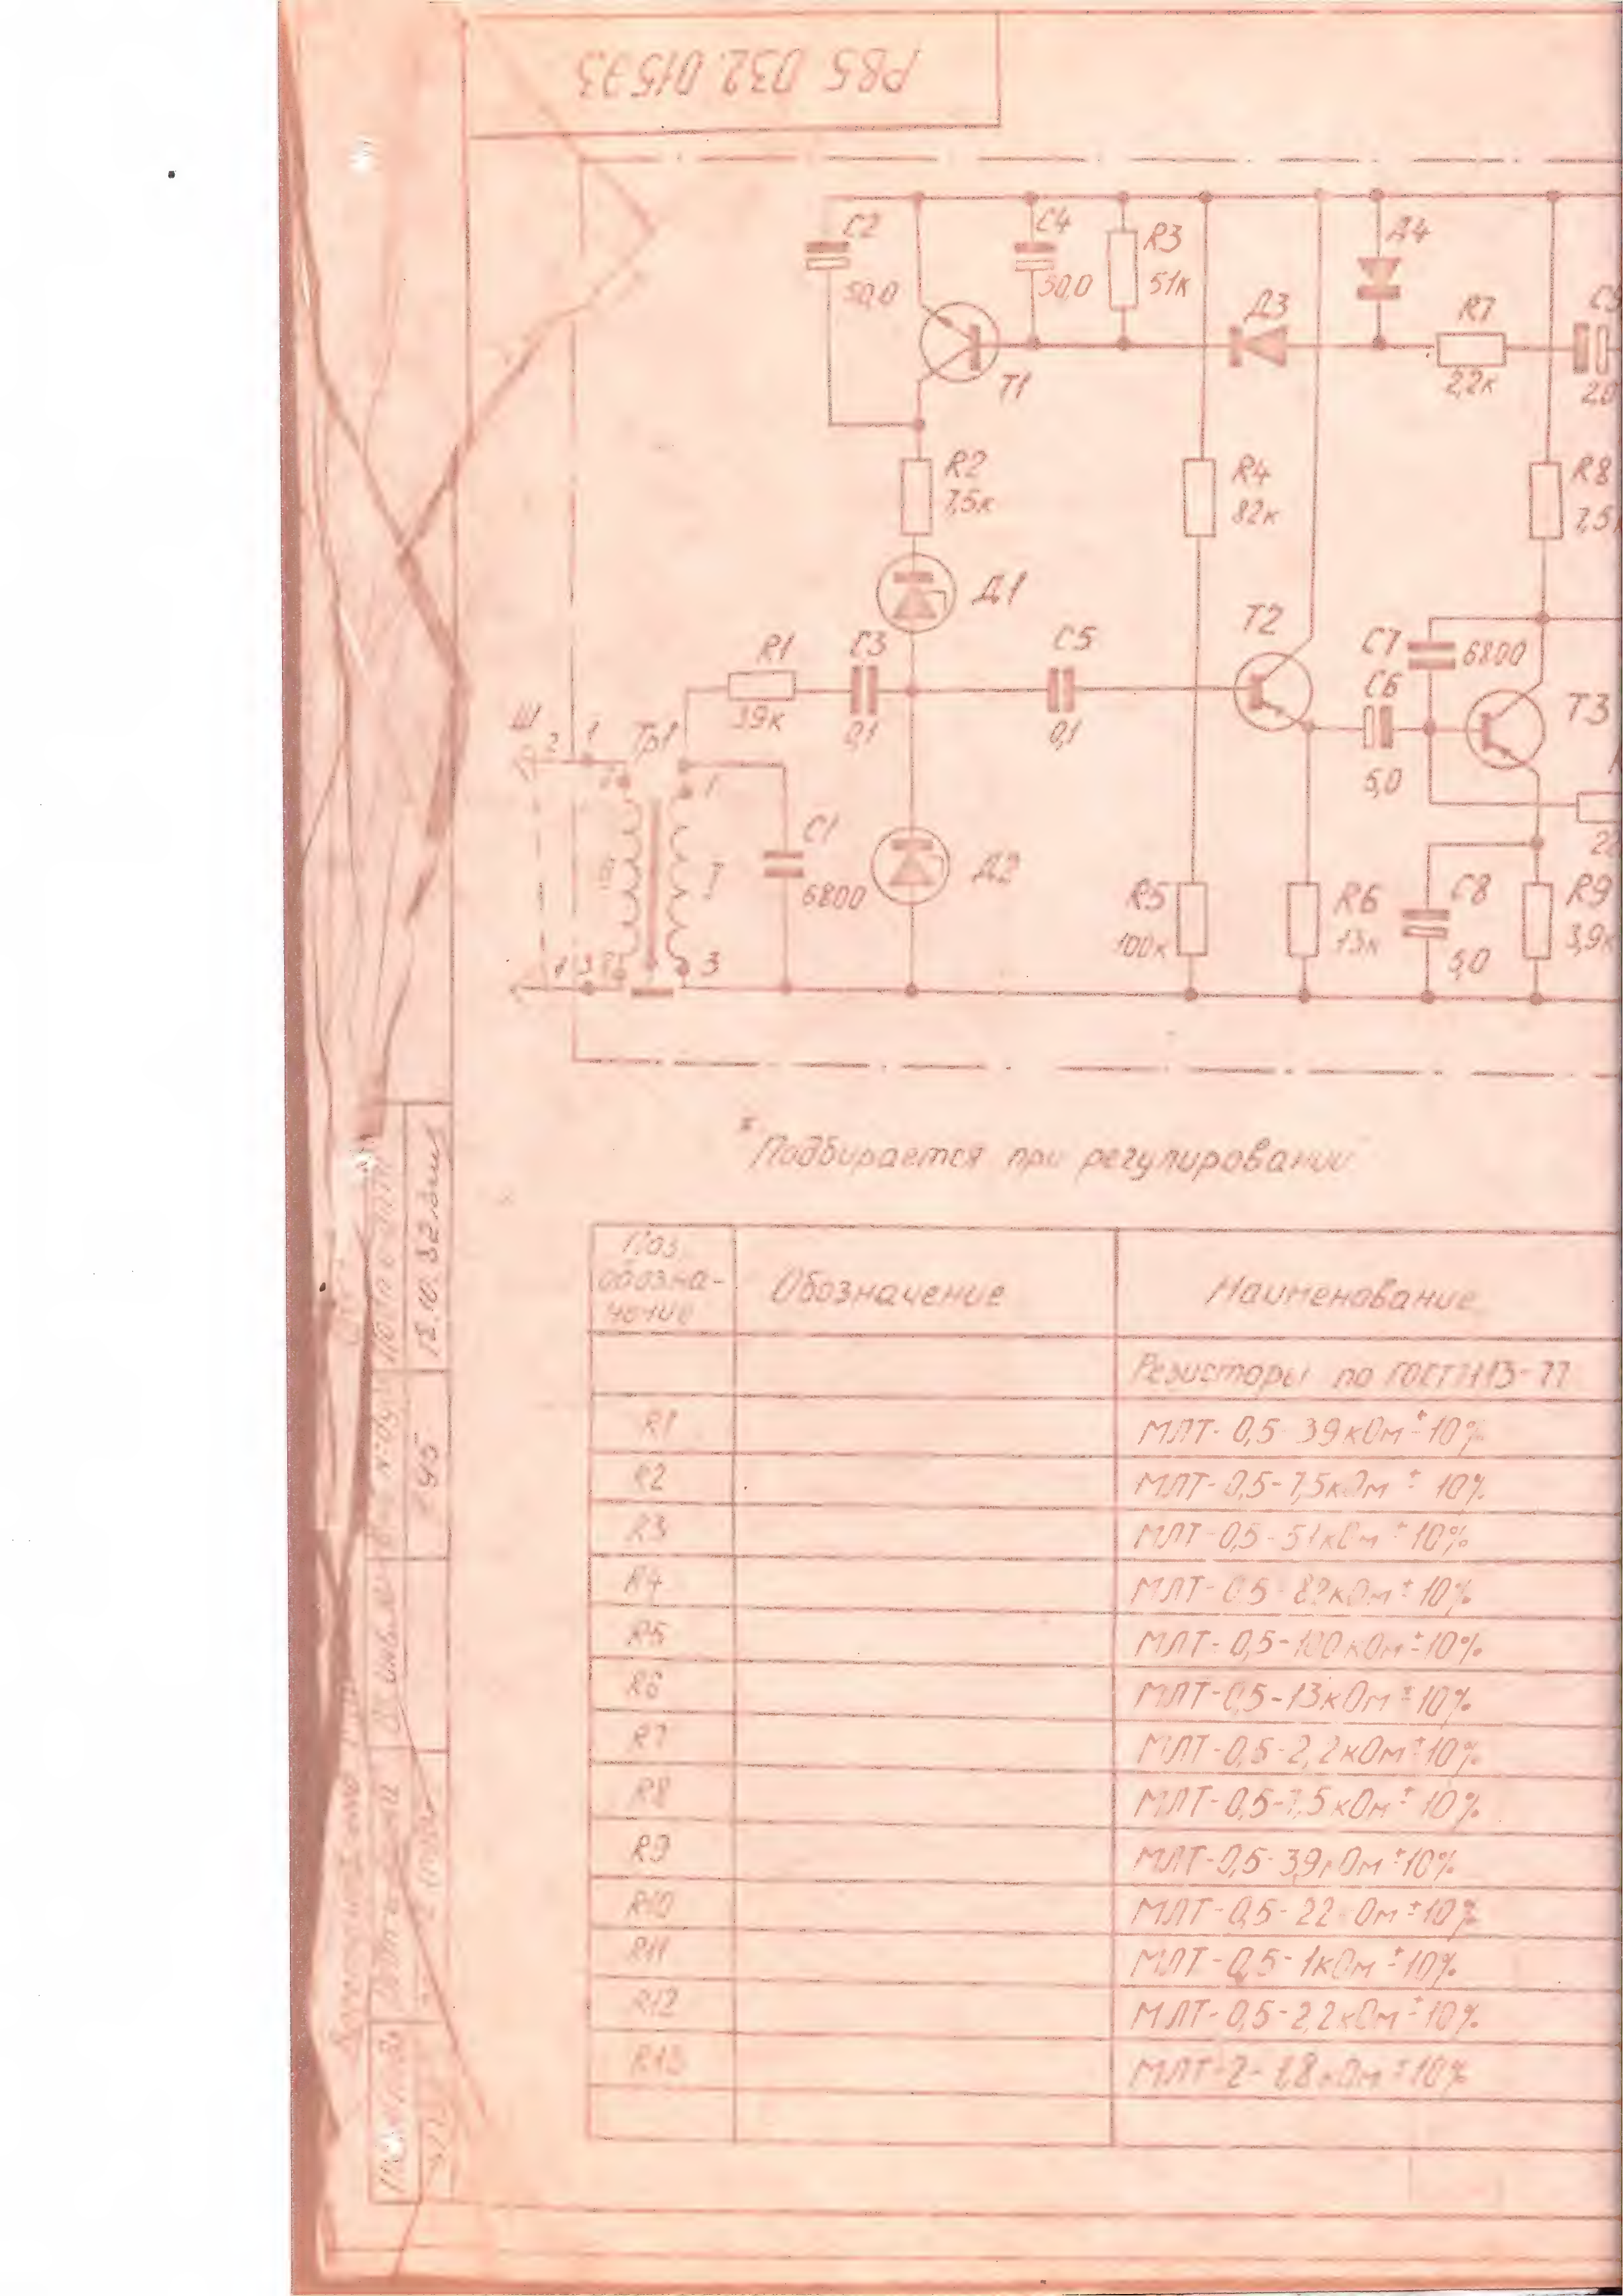 РВ5. 032. 015Э3
C2
50,0
C4
50,0
R3
51к
Д4
Д3
R7
2,2к
T1
2,0
R2
7,5к
R4
82к
R8
7,5
Д1
T2
R1
39к
C3
0,1
C5
0,1
C7
6800
C6
5,0
T3
Ш
2
1
Тр1
1
C1
6800
Д2
R5
100к
R6
13к
C8
5,0
R9
3,9к
1
3
3
* Подбирается при регулировании
Поз.
обозна-
чение
Обозначение
Наименование
Резисторы по ГОСТ7113-77
R1
МЛТ-0,5-39кОм±10%
R2
МЛТ-0,5-7,5кОм ± 10%
R3
МЛТ-0,5-51кОм ±10%
R4
МЛТ-0,5-82кОм±10%
R5
МЛТ-0,5-100кОм±10%
R6
МЛТ-0,5-13кОм±10%
R7
МЛТ-0,5-2,2кОм±10%
R8
МЛТ-0,5-7,5кОм±10%
R9
МЛТ-0,5-3,9кОм±10%
R10
МЛТ-0,5-22 Ом±10%
R11
МЛТ-0,5-1кОм±10%
R12
МЛТ-0,5-2,2кОм±10%
R13
МЛТ-2-1,8кОм±10%